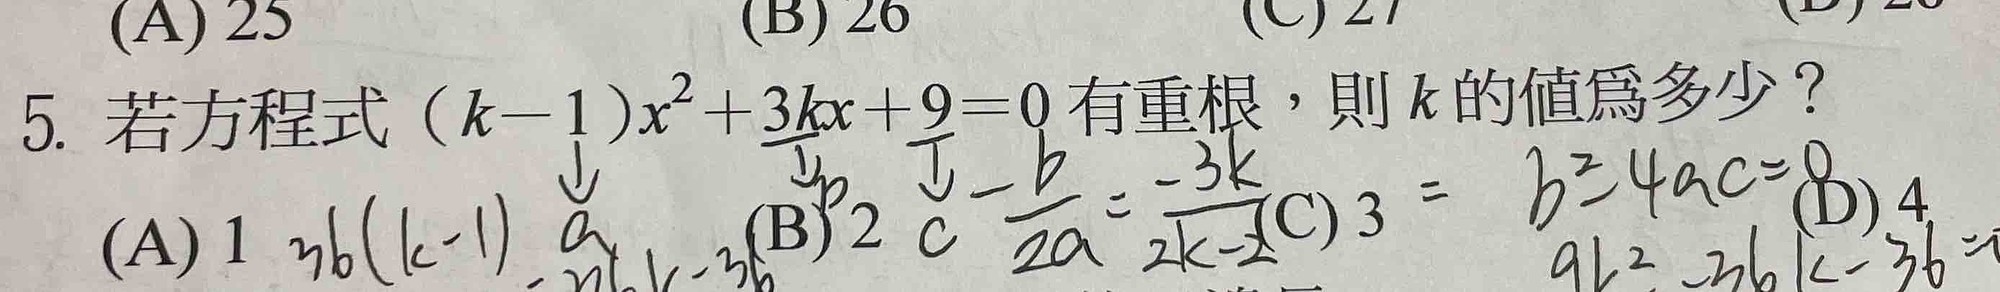 (A) 25 (B) 26 (C) 27
5. 若方程式（k－1）x²＋3kx＋9＝0 有重根，則 k 的値爲多少？
↓ ↓ ↓
(A) 1 36(k-1) a (B) 2 b c -b/2a = -3k/2k-2 (C) 3 = b²-4ac=0 (D) 4
9k²-36k-36=0